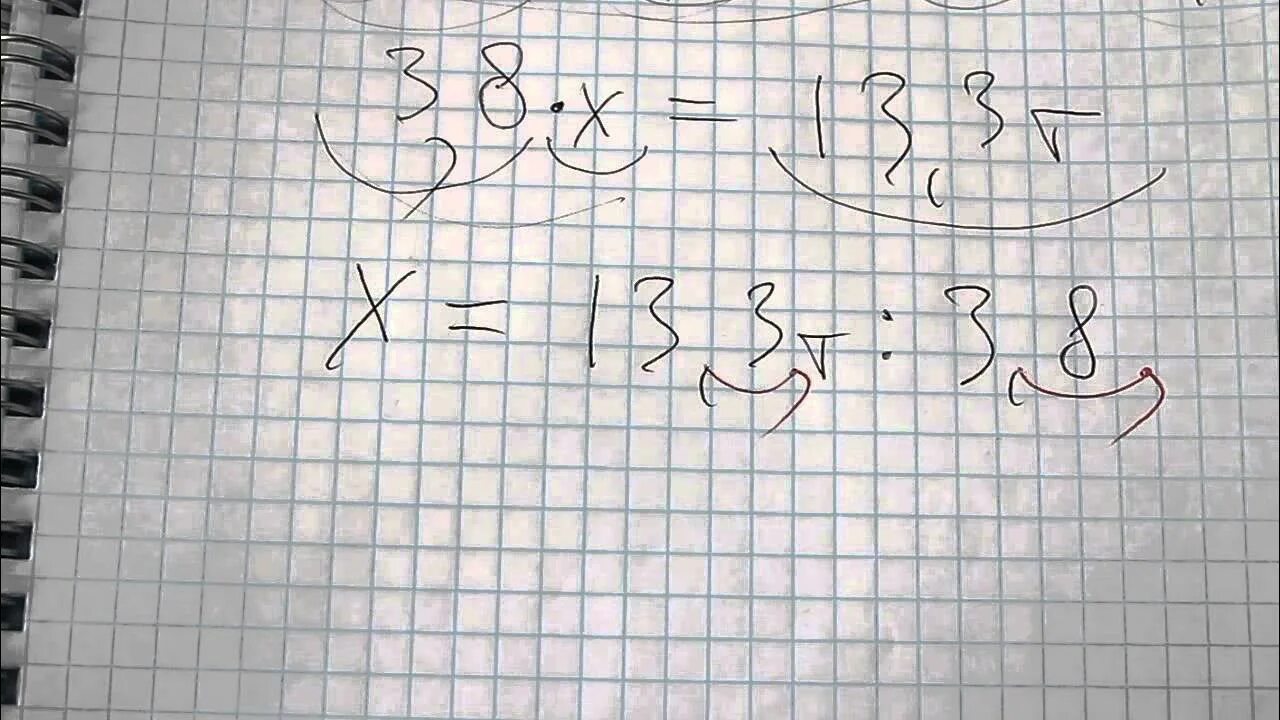 3,8·x = 13,3т
x = 13,3т : 3,8